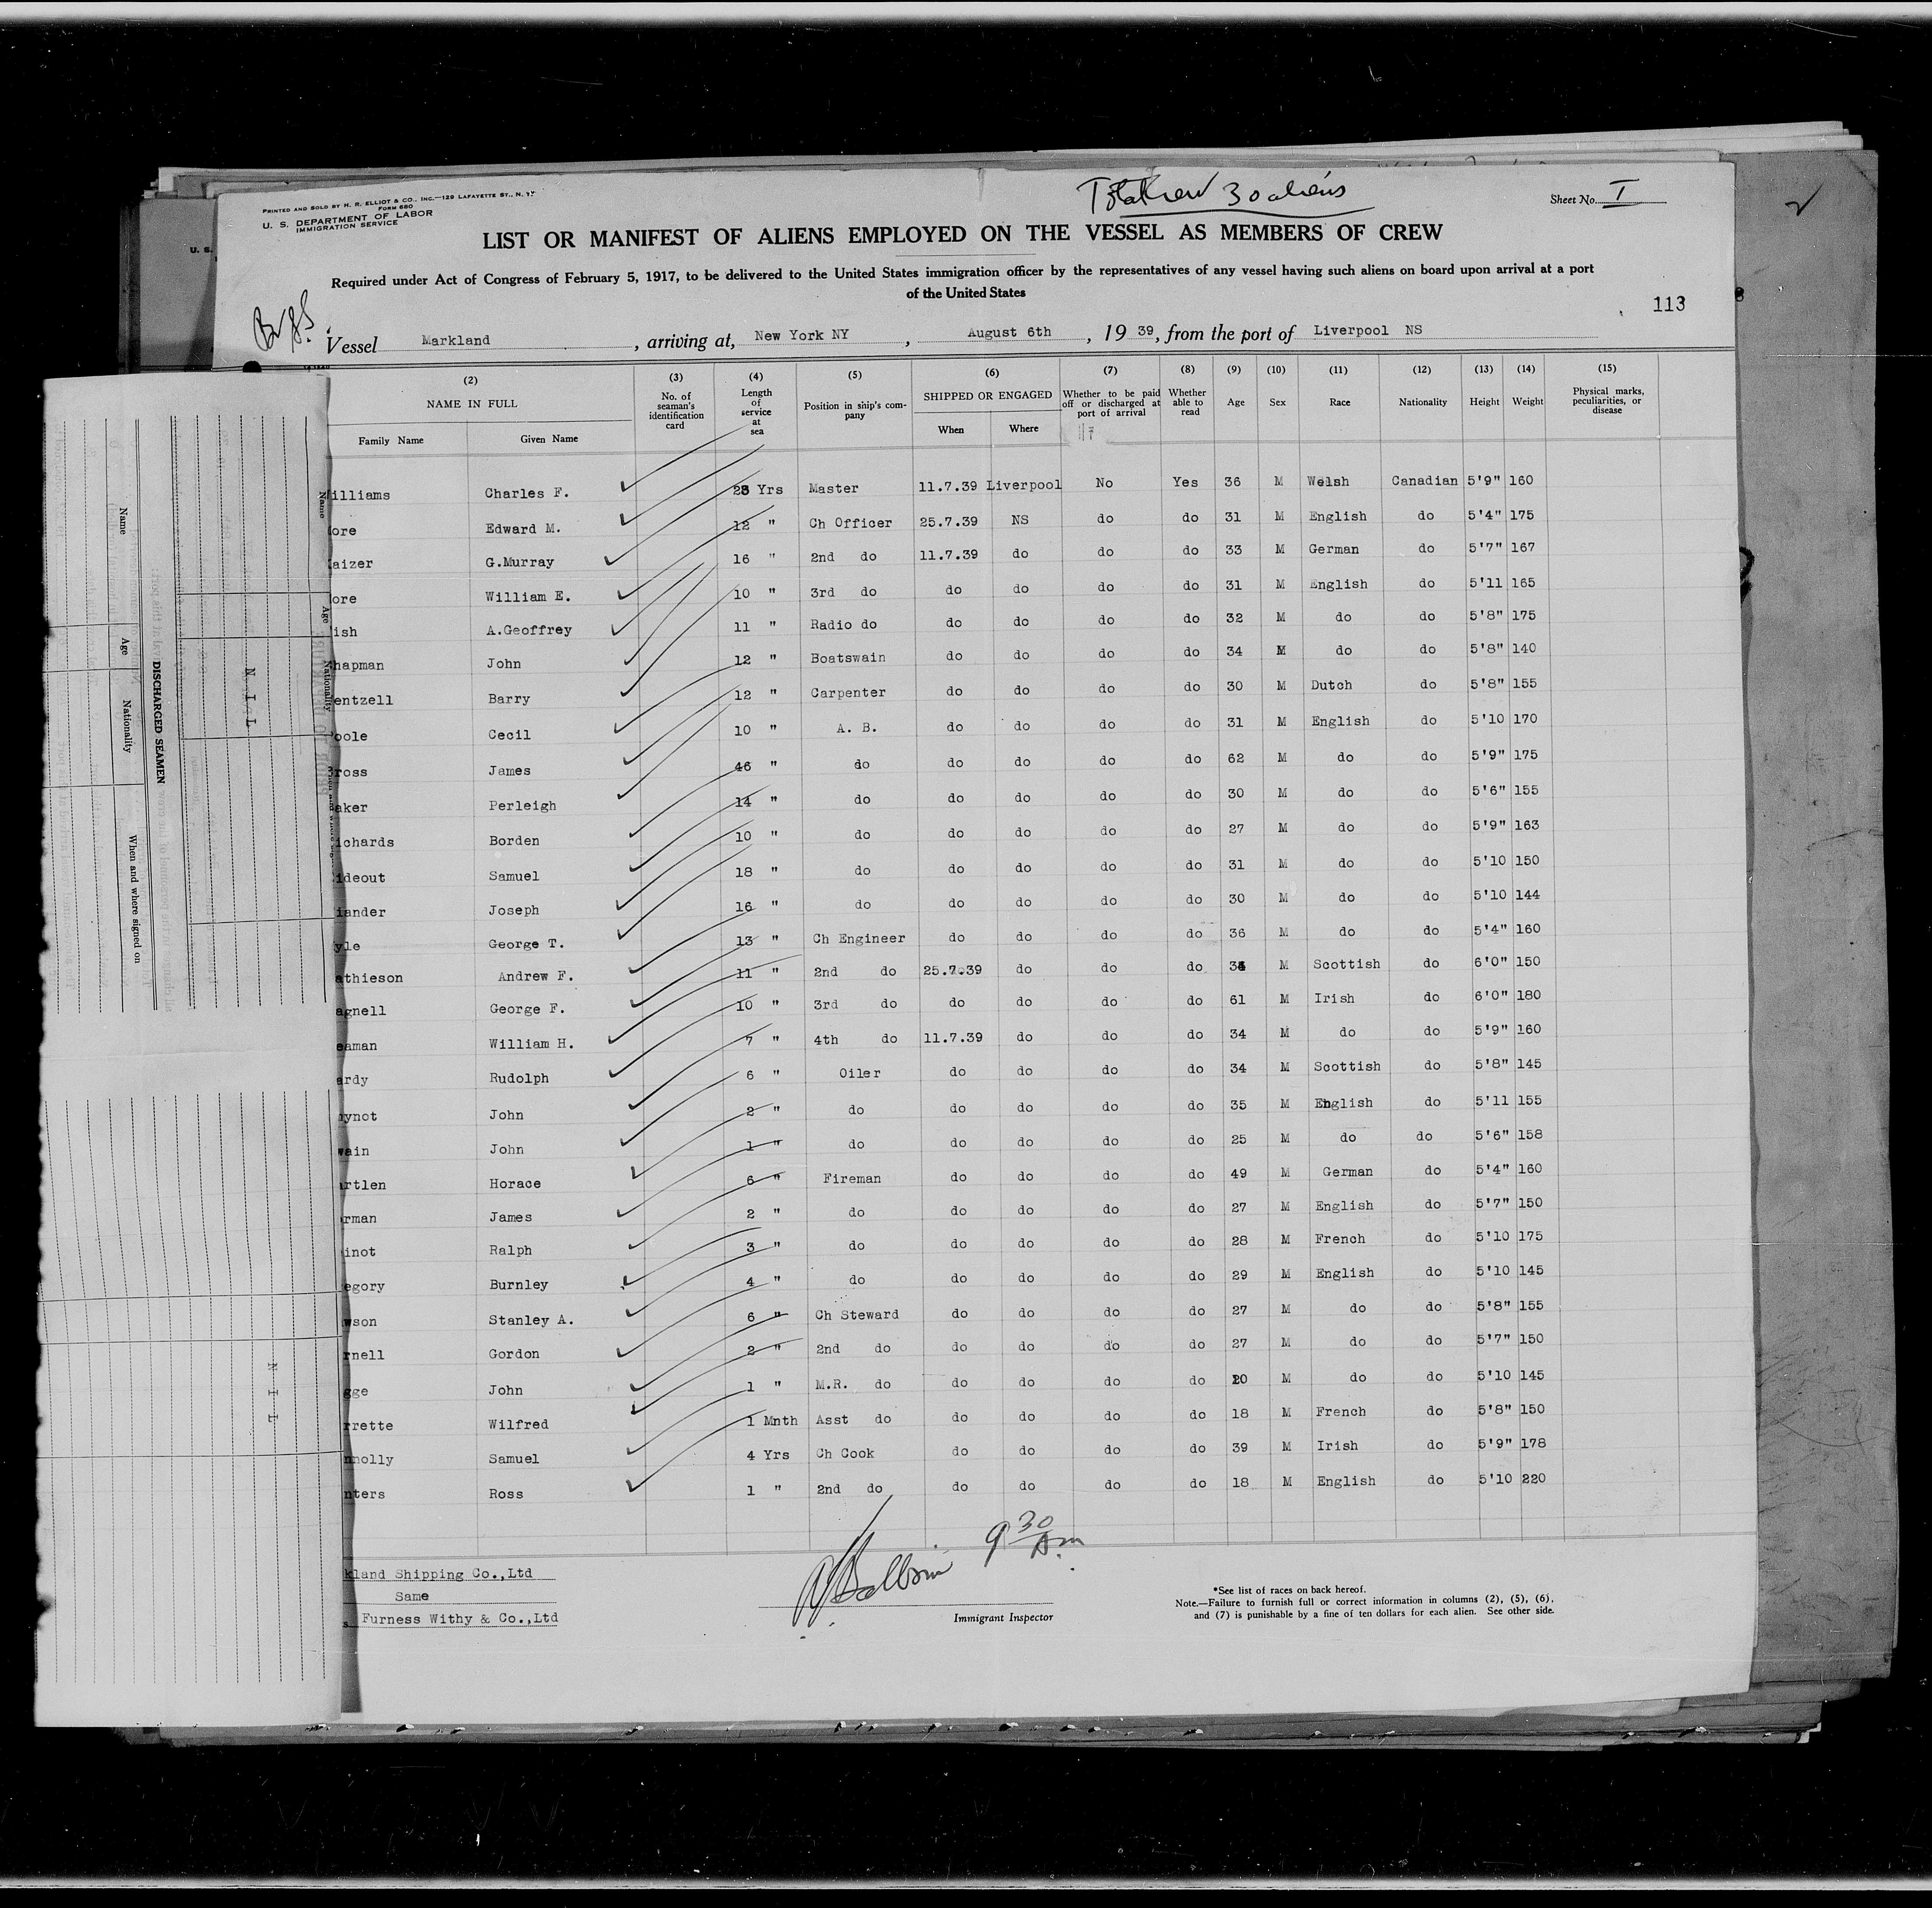 PRINTED AND SOLD BY H. R. ELLIOT & CO., INC.—129 LAFAYETTE ST., N. Y.
FORM 680
U. S. DEPARTMENT OF LABOR
IMMIGRATION SERVICE
Total crew 30 aliens
Sheet No. I
LIST OR MANIFEST OF ALIENS EMPLOYED ON THE VESSEL AS MEMBERS OF CREW
Required under Act of Congress of February 5, 1917, to be delivered to the United States immigration officer by the representatives of any vessel having such aliens on board upon arrival at a port
of the United States
113
Vessel Markland, arriving at, New York NY, August 6th, 19 39, from the port of Liverpool NS
(2) (3) (4) (5) (6) (7) (8) (9) (10) (11) (12) (13) (14) (15)
NAME IN FULL No. of seaman's identification card Length of service at sea Position in ship's company SHIPPED OR ENGAGED Whether to be paid off or discharged at port of arrival Whether able to read Age Sex Race Nationality Height Weight Physical marks, peculiarities, or disease
Family Name Given Name When Where
illiams Charles F. 23 Yrs Master 11.7.39 Liverpool No Yes 36 M Welsh Canadian 5'9" 160
ore Edward M. 12 " Ch Officer 25.7.39 NS do do 31 M English do 5'4" 175
aizer G.Murray 16 " 2nd do 11.7.39 do do do 33 M German do 5'7" 167
ore William E. 10 " 3rd do do do do do 31 M English do 5'11 165
ish A.Geoffrey 11 " Radio do do do do do 32 M do do 5'8" 175
hapman John 12 " Boatswain do do do do 34 M do do 5'8" 140
entzell Barry 12 " Carpenter do do do do 30 M Dutch do 5'8" 155
oole Cecil 10 " A. B. do do do do 31 M English do 5'10 170
ross James 46 " do do do do do 62 M do do 5'9" 175
aker Perleigh 14 " do do do do do 30 M do do 5'6" 155
ichards Borden 10 " do do do do do 27 M do do 5'9" 163
ideout Samuel 18 " do do do do do 31 M do do 5'10 150
iander Joseph 16 " do do do do do 30 M do do 5'10 144
yle George T. 13 " Ch Engineer do do do do 36 M do do 5'4" 160
athieson Andrew F. 11 " 2nd do 25.7.39 do do do 34 M Scottish do 6'0" 150
agnell George F. 10 " 3rd do do do do do 61 M Irish do 6'0" 180
eaman William H. 7 " 4th do 11.7.39 do do do 34 M do do 5'9" 160
ardy Rudolph 6 " Oiler do do do do 34 M Scottish do 5'8" 145
ynot John 2 " do do do do do 35 M English do 5'11 155
wain John 1 " do do do do do 25 M do do 5'6" 158
artlen Horace 6 " Fireman do do do do 49 M German do 5'4" 160
rman James 2 " do do do do do 27 M English do 5'7" 150
inot Ralph 3 " do do do do do 28 M French do 5'10 175
egory Burnley 4 " do do do do do 29 M English do 5'10 145
wson Stanley A. 6 " Ch Steward do do do do 27 M do do 5'8" 155
rnell Gordon 2 " 2nd do do do do do 27 M do do 5'7" 150
gge John 1 " M.R. do do do do do 20 M do do 5'10 145
rrette Wilfred 1 Mnth Asst do do do do do 18 M French do 5'8" 150
nnolly Samuel 4 Yrs Ch Cook do do do do 39 M Irish do 5'9" 178
nters Ross 1 " 2nd do do do do do 18 M English do 5'10 220
9 30 Am
kland Shipping Co.,Ltd
Same
s Furness Withy & Co.,Ltd
Immigrant Inspector
*See list of races on back hereof.
Note.—Failure to furnish full or correct information in columns (2), (5), (6),
and (7) is punishable by a fine of ten dollars for each alien. See other side.
DISCHARGED SEAMEN
Name Age Nationality When and where signed on
Name Age Nationality
N I L
N I L
U. S.